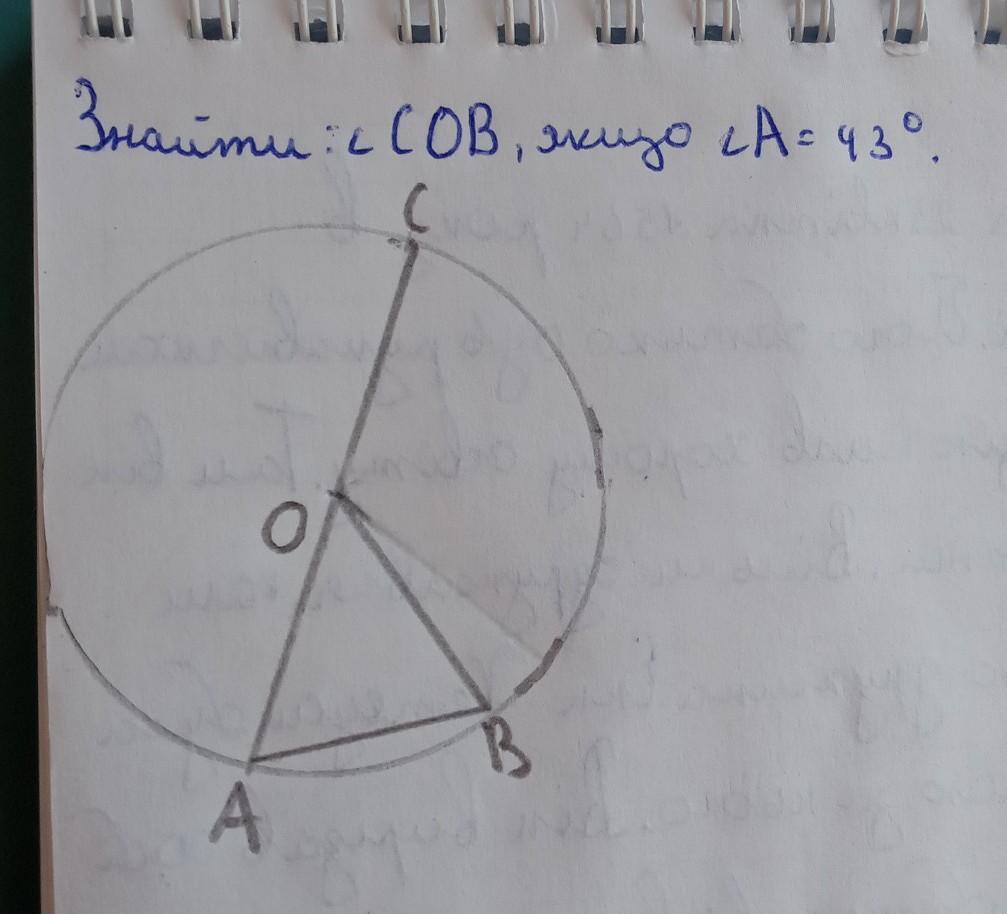 Знайти: ∠COB, якщо ∠A = 43°.
C
O
B
A